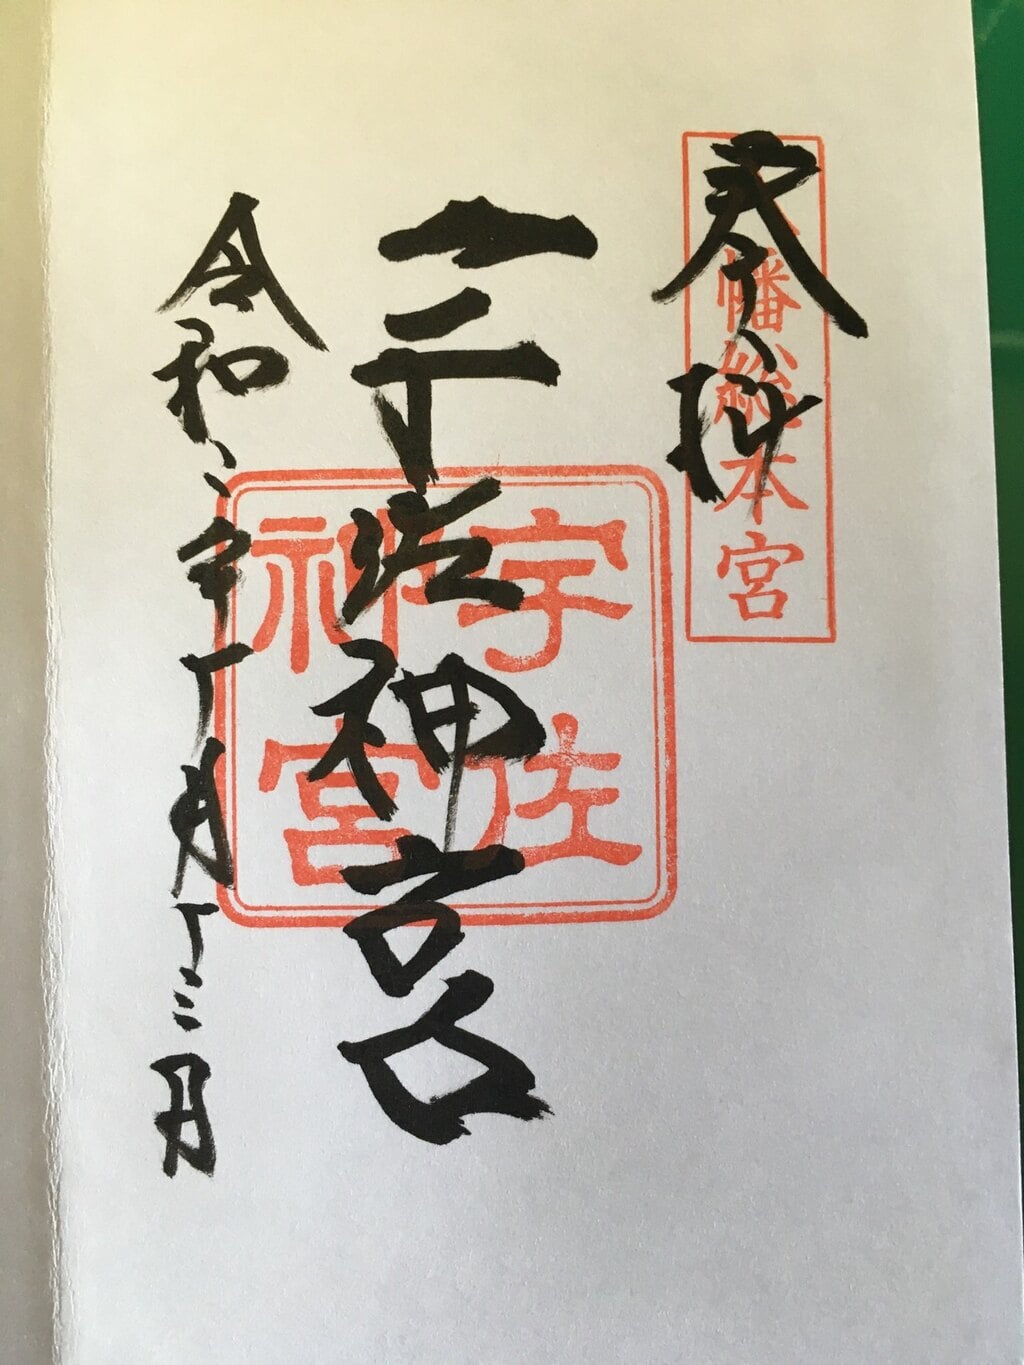 奉拝
八幡総本宮
宇佐神宮
宇佐
神宮
令和二年十月十三日